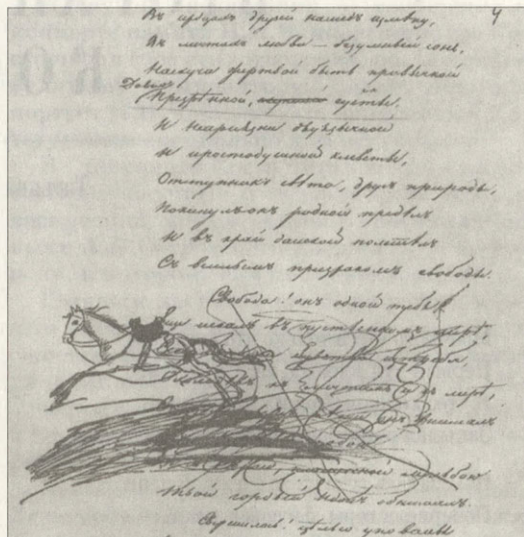 Въ сердцахъ друзей нашедъ измѣну,
Въ мечтахъ любви — безумный сонъ,
Наскуча жертвой быть привычной
Давно
Презрѣнной, суеты.
И непріязни двуязычной
И простодушной клеветы,
Отступникъ свѣта, другъ природы,
Покинулъ онъ родной предѣлъ
И въ край далекой полетѣлъ
Съ веселымъ призракомъ свободы.
Свобода! онъ одной тебя
Еще искалъ въ пустынномъ мірѣ,
чувства
къ и къ лирѣ,
внималъ
пламенной мольбою
Твой гордый идолъ обнималъ.
Свершилось! цѣлью упованья